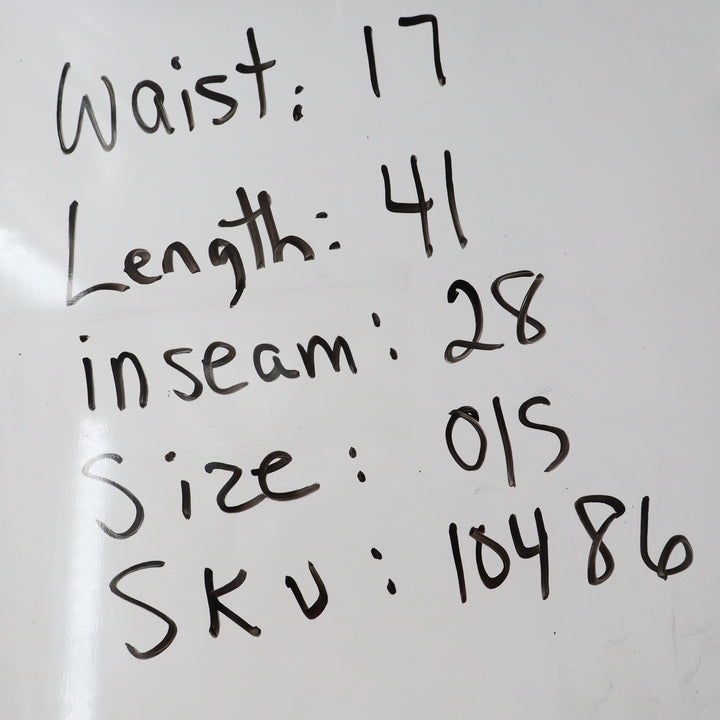 Waist: 17
Length: 41
inseam: 28
Size: O/S
SKU: 10486